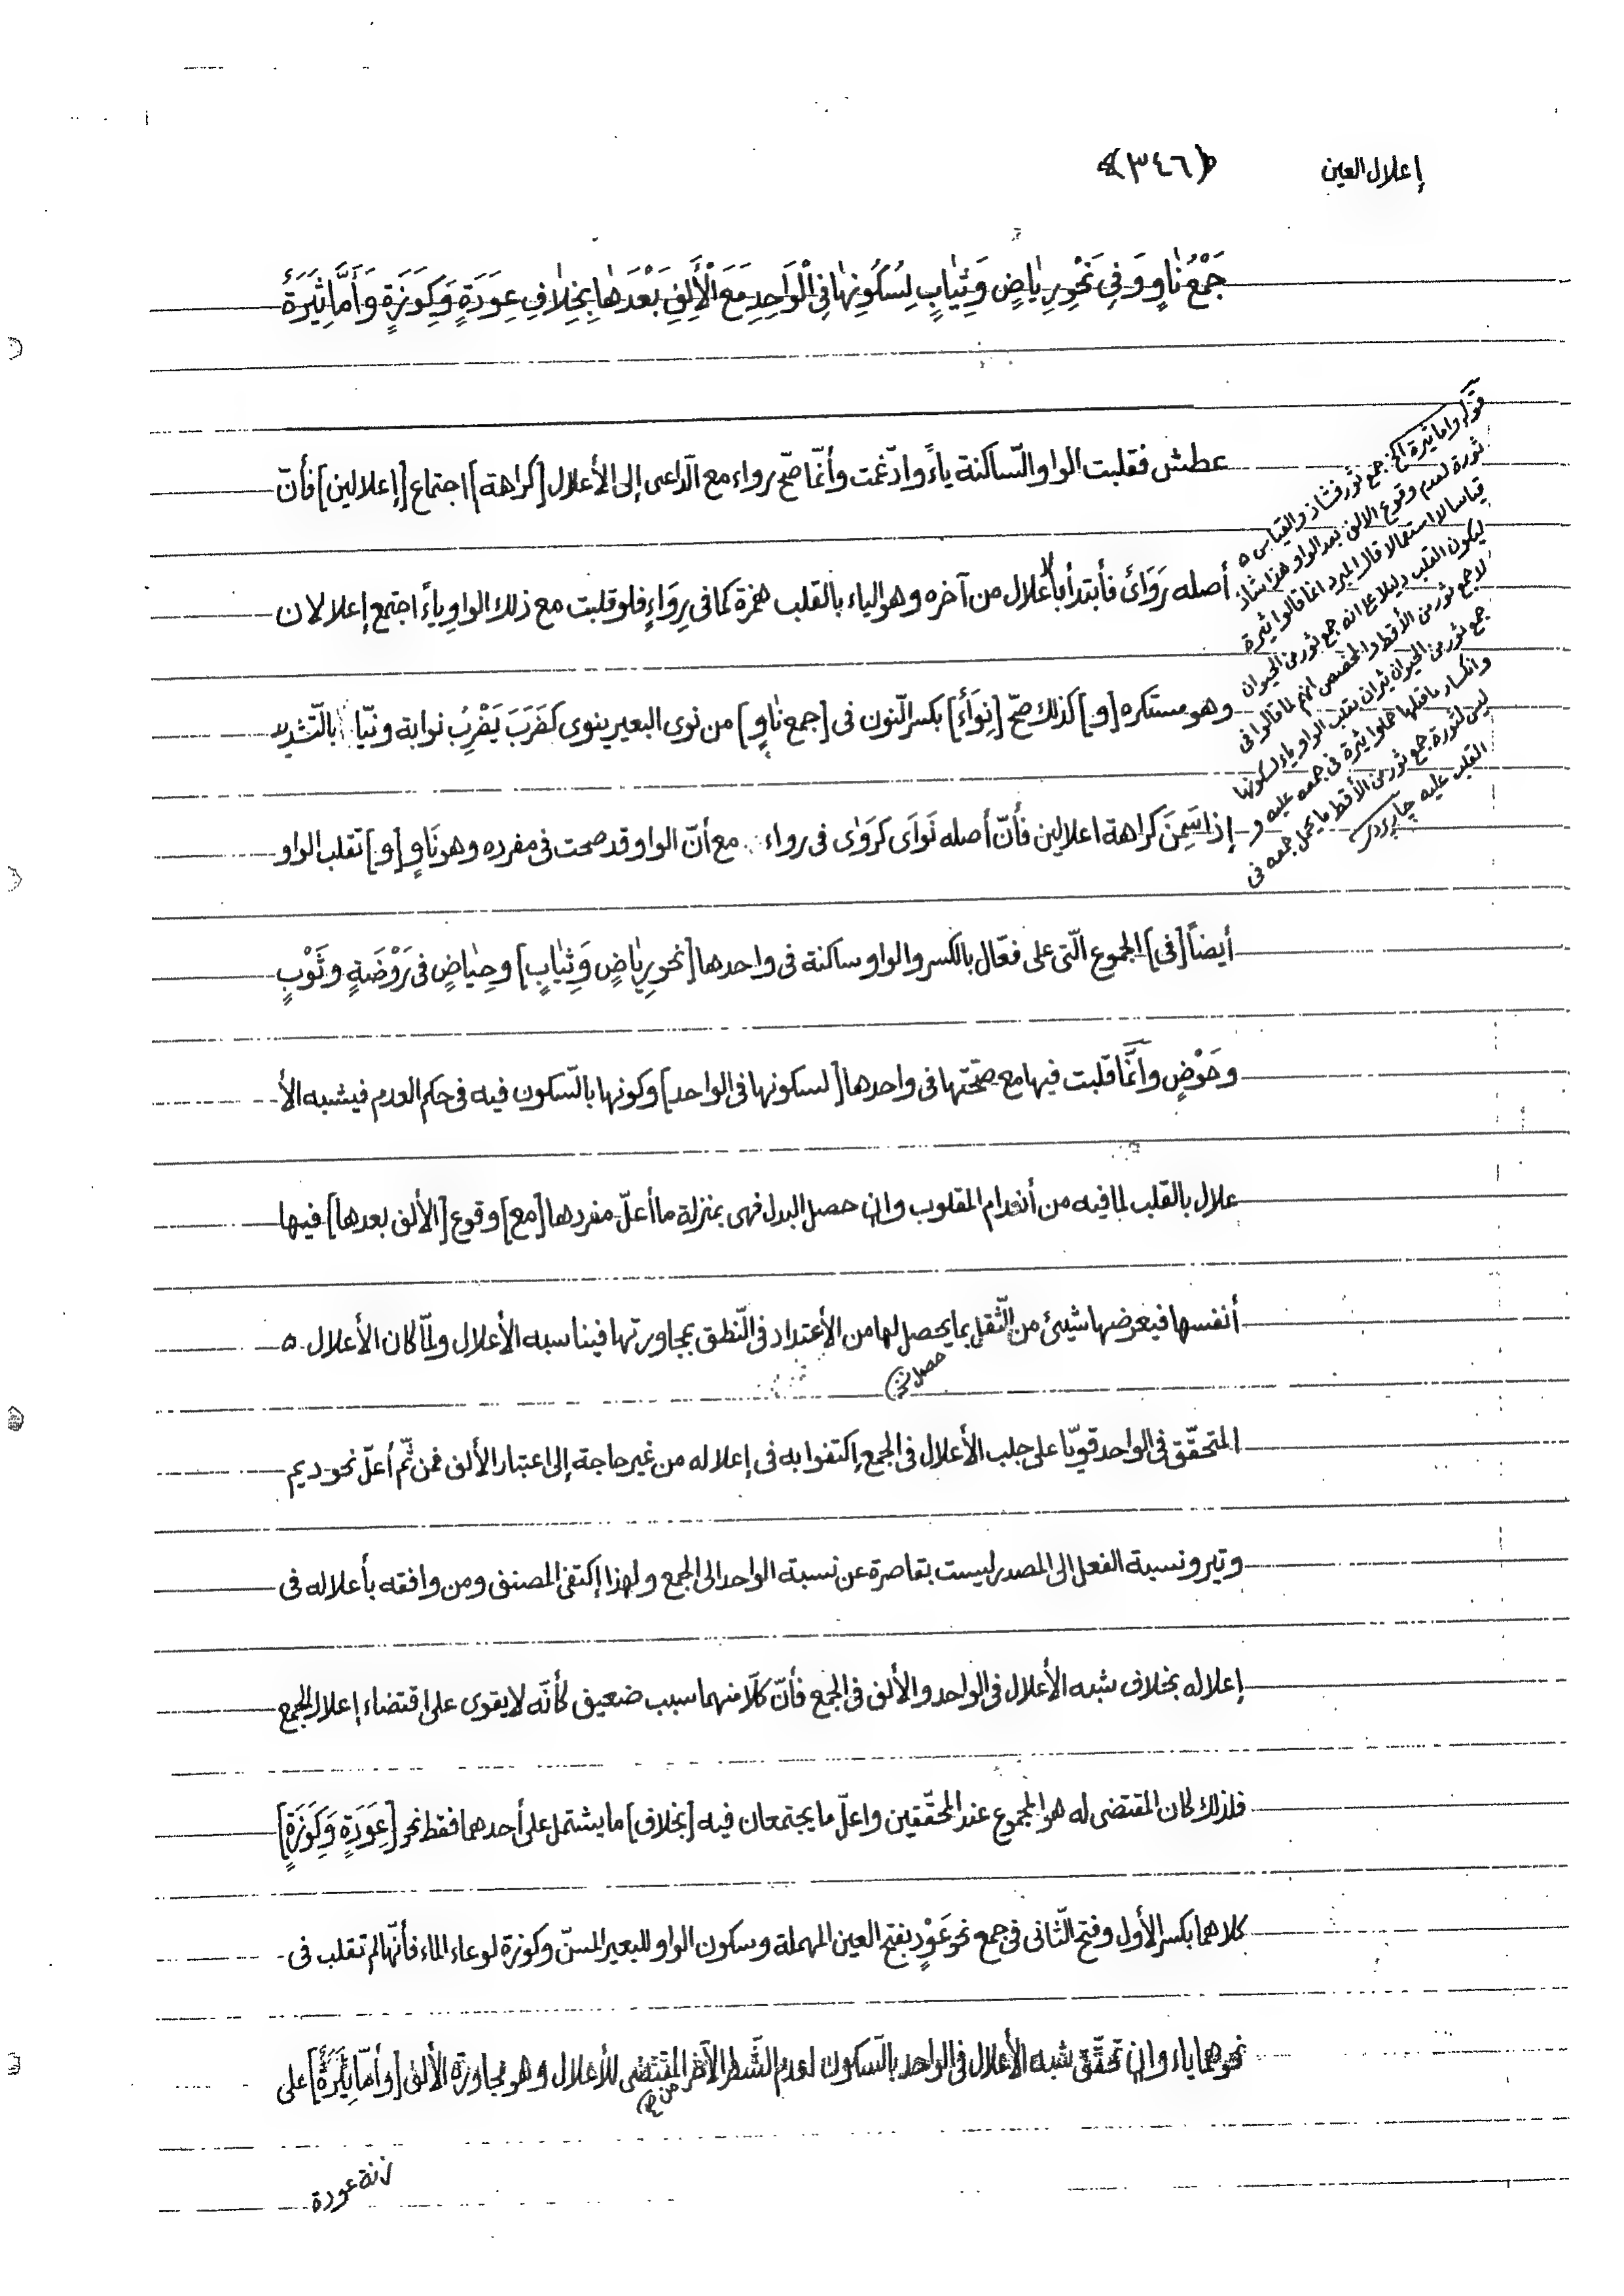 إعلال العين
﴿٣٤٦﴾
جَمْعُ نٰاوٍ وَفِى نَحْوِ رِيٰاضٍ وَثِيٰابٍ لِسُكُونِهٰا فِى الْوٰاحِدِ مَعَ الْأَلِفِ بَعْدَهٰا بِخِلٰافِ عِوَدَةٍ وَكِوَزَةٍ وَأَمَّا ثِيَرَةٌ
عطش فقلبت الواو السّاكنة ياءً وادّغمت وأنّما صحّ رواء مع الدّاعى إلى الأعلال [كراهة] اجتماع [إعلالين] فأنّ
أصله رَوَائ فأبتدأ بالأعلال من آخره وهو الياء بالقلب همزة كما فى رِوَاءٍ فلو قلبت مع ذلك الواو ياءً اجتمع إعلالان
وهو مستكره [و] كذلك صحّ [نِوَاءٌ] بكسر النّون فى [جمع نٰاوٍ] من نوى البعير ينوى كضَرَبَ يَضْرِبُ نواية ونيّا بالتّشديد
إذا سَمِنَ كراهة اعلالين فأنّ أصله نَوَاَى كَرَوٰى فى رواء مع أنّ الواو قد صحت فى مفرده وهو نَاوٍ [و] تقلب الواو
أيضاً [فى] الجموع الّتى على فعّال بالكسر والواو ساكنة فى واحدها [نحو رِيٰاضٍ وَثِيٰابٍ] وحِيٰاضٍ فى رَوْضَةٍ وثَوْبٍ
وحَوْضٍ وأَنَّما قلبت فيها مع صحّتها فى واحدها [لسكونها فى الواحد] وكونها بالسّكون فيه فى حكم العدم فيشبه الأ
علال بالقلب لما فيه من أنعدام المقلوب وان حصل البدل فهى بمنزلة ما أعلّ مفردها [مع] وقوع [الألف بعدها] فيها
أنفسها فيعرضها شيئ من الثّقل بما يحصل لها من الأعتداد فى النّطق بمجاورتها فيناسبه الأعلال ولمّا كان الأعلال
حصل
المتحقّق فى الواحد قويّا على جلب الأعلال فى الجمع إكتفوا به فى إعلاله من غير حاجة إلى اعتبار الألف فمن ثمّ أعلّ نحو ديم
وتير ونسبة الفعل الى المصدر ليست بقاصرة عن نسبة الواحد الى الجمع ولهذا إكتفى المصنف ومن وافقه بأعلاله فى
إعلاله بخلاف شبه الأعلال فى الواحد والألف فى الجمع فأنّ كلّا منهما سبب ضعيف كأنّه لا يقوى على إقتضاء إعلال الجمع
فلذلك كان المقتضى له هو المجموع عند المحقّقين واعلّ ما يجتمعان فيه [بخلاف] ما يشتمل على أحدهما فقط نحو [عِوَدَةٍ وَكِوَزَةٍ]
كلاهما بكسر الأول وفتح الثّانى فى جمع نحو عَوْدٍ بفتح العين المهملة وسكون الواو للبعير المسنّ وكوزة لوعاء الماء فأنّها لم تقلب فى
نحوهما ياء وان تحقّق شبه الأعلال فى الواحد بالسّكون لعدم الشّطر الآخر المقتضى للأعلال وهو مجاورة الألف [وأمّا ثِيَرَةٌ] على
زنة عودة
قوله واما ثيرة الخ جمع ثور فشاذ والقياس
ثورة لعدم وقوع الالف بعد الواو هذا شاذ
قياسا لا استعمالا قال المبرد انما قالوا ثيرة
ليكون القلب دليلا على انه جمع ثور من الحيوان
لا جمع ثور من الأقط والمخصص انهم لما قالوا فى
جمع ثور من الحيوان ثيران بقلب الواو ياء لسكونها
وانكسار ما قبلها حملوا ثيرة فى جمعه عليه و
ليس لثورة جمع ثور من الأقط ما يحمل جمعه فى
القلب عليه جاربردى